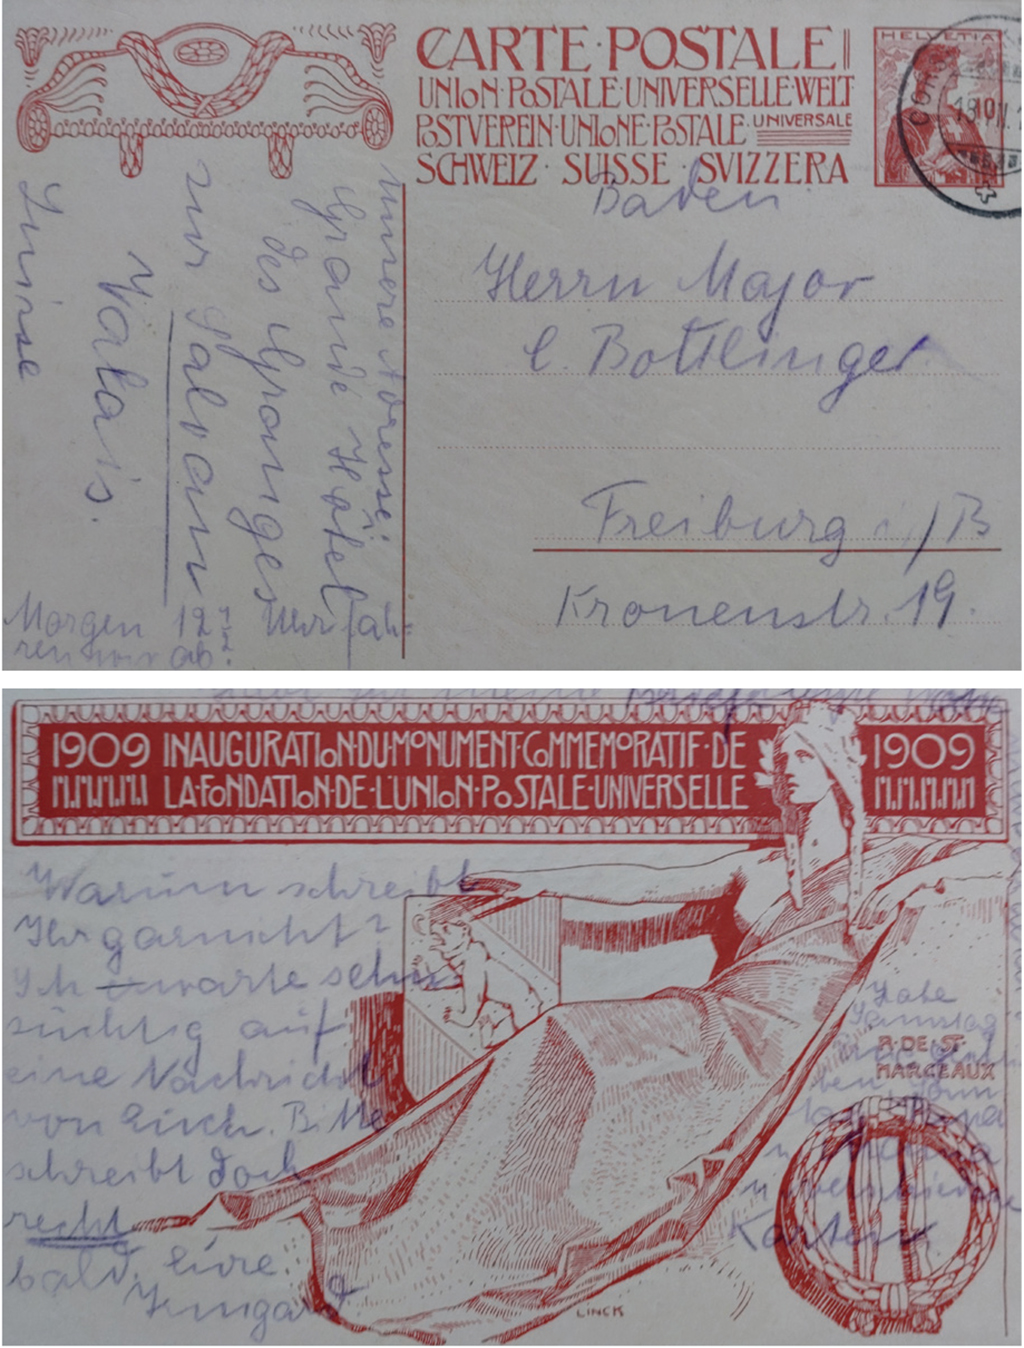 CARTE·POSTALE
UNION·POSTALE·UNIVERSELLE·WELT
POSTVEREIN·UNIONE·POSTALE UNIVERSALE
SCHWEIZ · SUISSE · SVIZZERA
HELVETIA
10
Baden
Herrn Major
C. Bottlinger
Freiburg i/B
Kronenstr. 19.
Unsere Adresse:
Grande Hôtel
des Granges
sur Salvan
Valais.
Suisse
Morgen 12 1/2 Uhr fah=
ren wir ab.
meine
1909 INAUGURATION·DU·MONUMENT·COMMEMORATIF·DE 1909
LA·FONDATION·DE·L'UNION·POSTALE·UNIVERSELLE
Warum schreibt
Ihr garnicht?
Ich warte sehn
süchtig auf
eine Nachricht
von Euch. Bitte
schreibt doch
recht
bald, Eure
Irmgard
Habe
Samstag
R·DE·ST·
MARCEAUX
Papa
u. Mama
u
Karten
LINCK